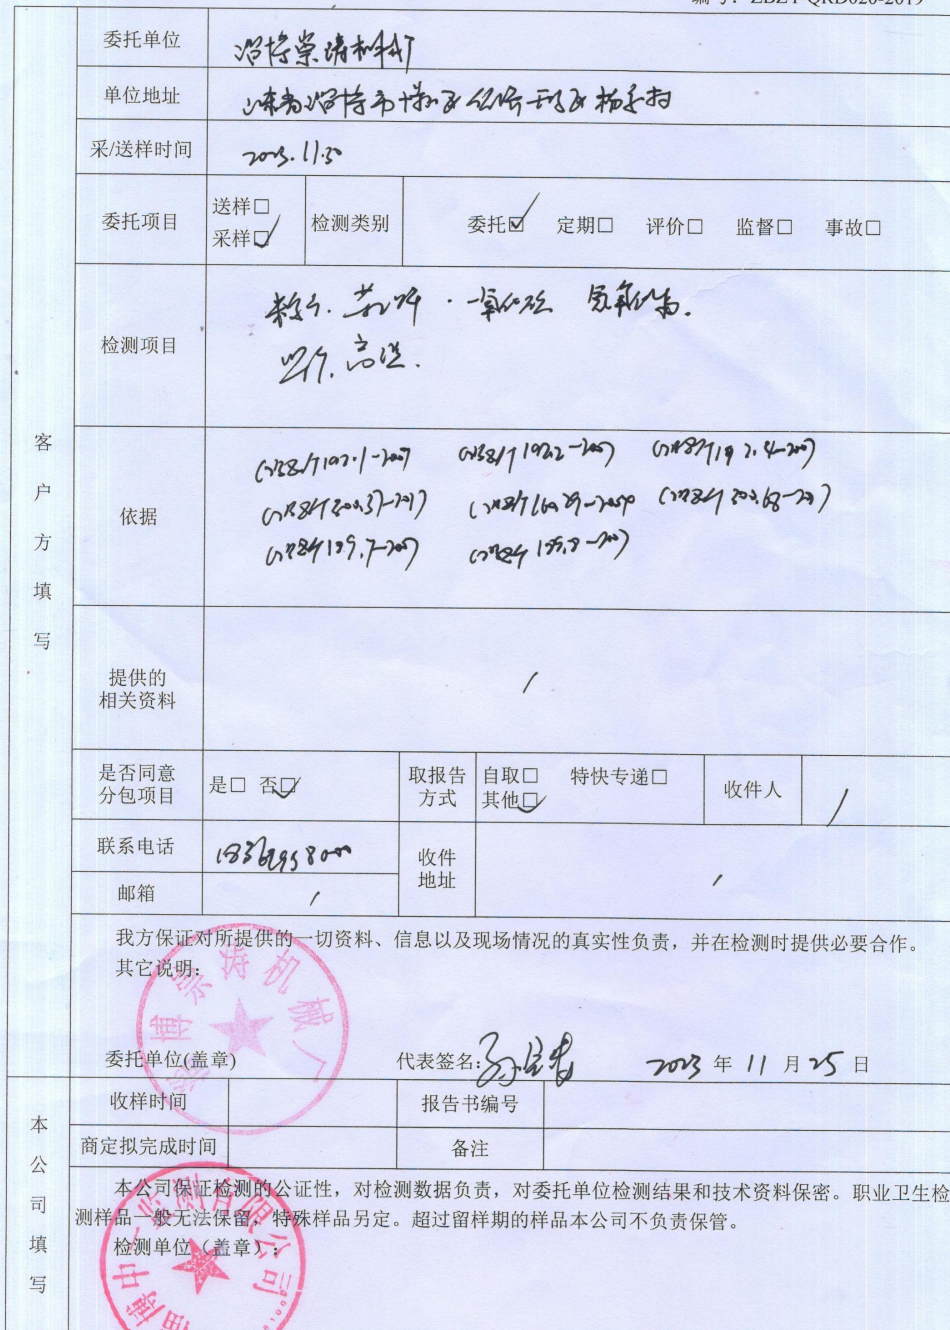 编号：ZBZY-QRD020-2019
委托单位 淄博崇涛机械厂
单位地址 山东省淄博市博山区
采/送样时间 2023.11.30
委托项目 送样□ 采样☑ 检测类别 委托☑ 定期□ 评价□ 监督□ 事故□
检测项目 粉尘. 一氧化碳 氮氧化物.
高温.
客户方填写
依据 GBZ/T192.1-2007 GBZ/T192.2-2007 GBZ/T192.4-2007
GBZ/T300.37-2017
GBZ/T189.7-2007 GBZ/T189.8-2007
提供的
相关资料 /
是否同意
分包项目 是□ 否☑ 取报告
方式 自取□ 特快专递□
其他☑ 收件人 /
联系电话 收件
地址 /
邮箱 /
我方保证对所提供的一切资料、信息以及现场情况的真实性负责，并在检测时提供必要合作。
其它说明：
淄博崇涛机械厂
委托单位(盖章) 代表签名: 2023 年 11 月 25 日
本公司填写
收样时间 报告书编号
商定拟完成时间 备注
本公司保证检测的公证性，对检测数据负责，对委托单位检测结果和技术资料保密。职业卫生检
测样品一般无法保留，特殊样品另定。超过留样期的样品本公司不负责保管。
检测单位（盖章）：
淄博中一检测有限公司